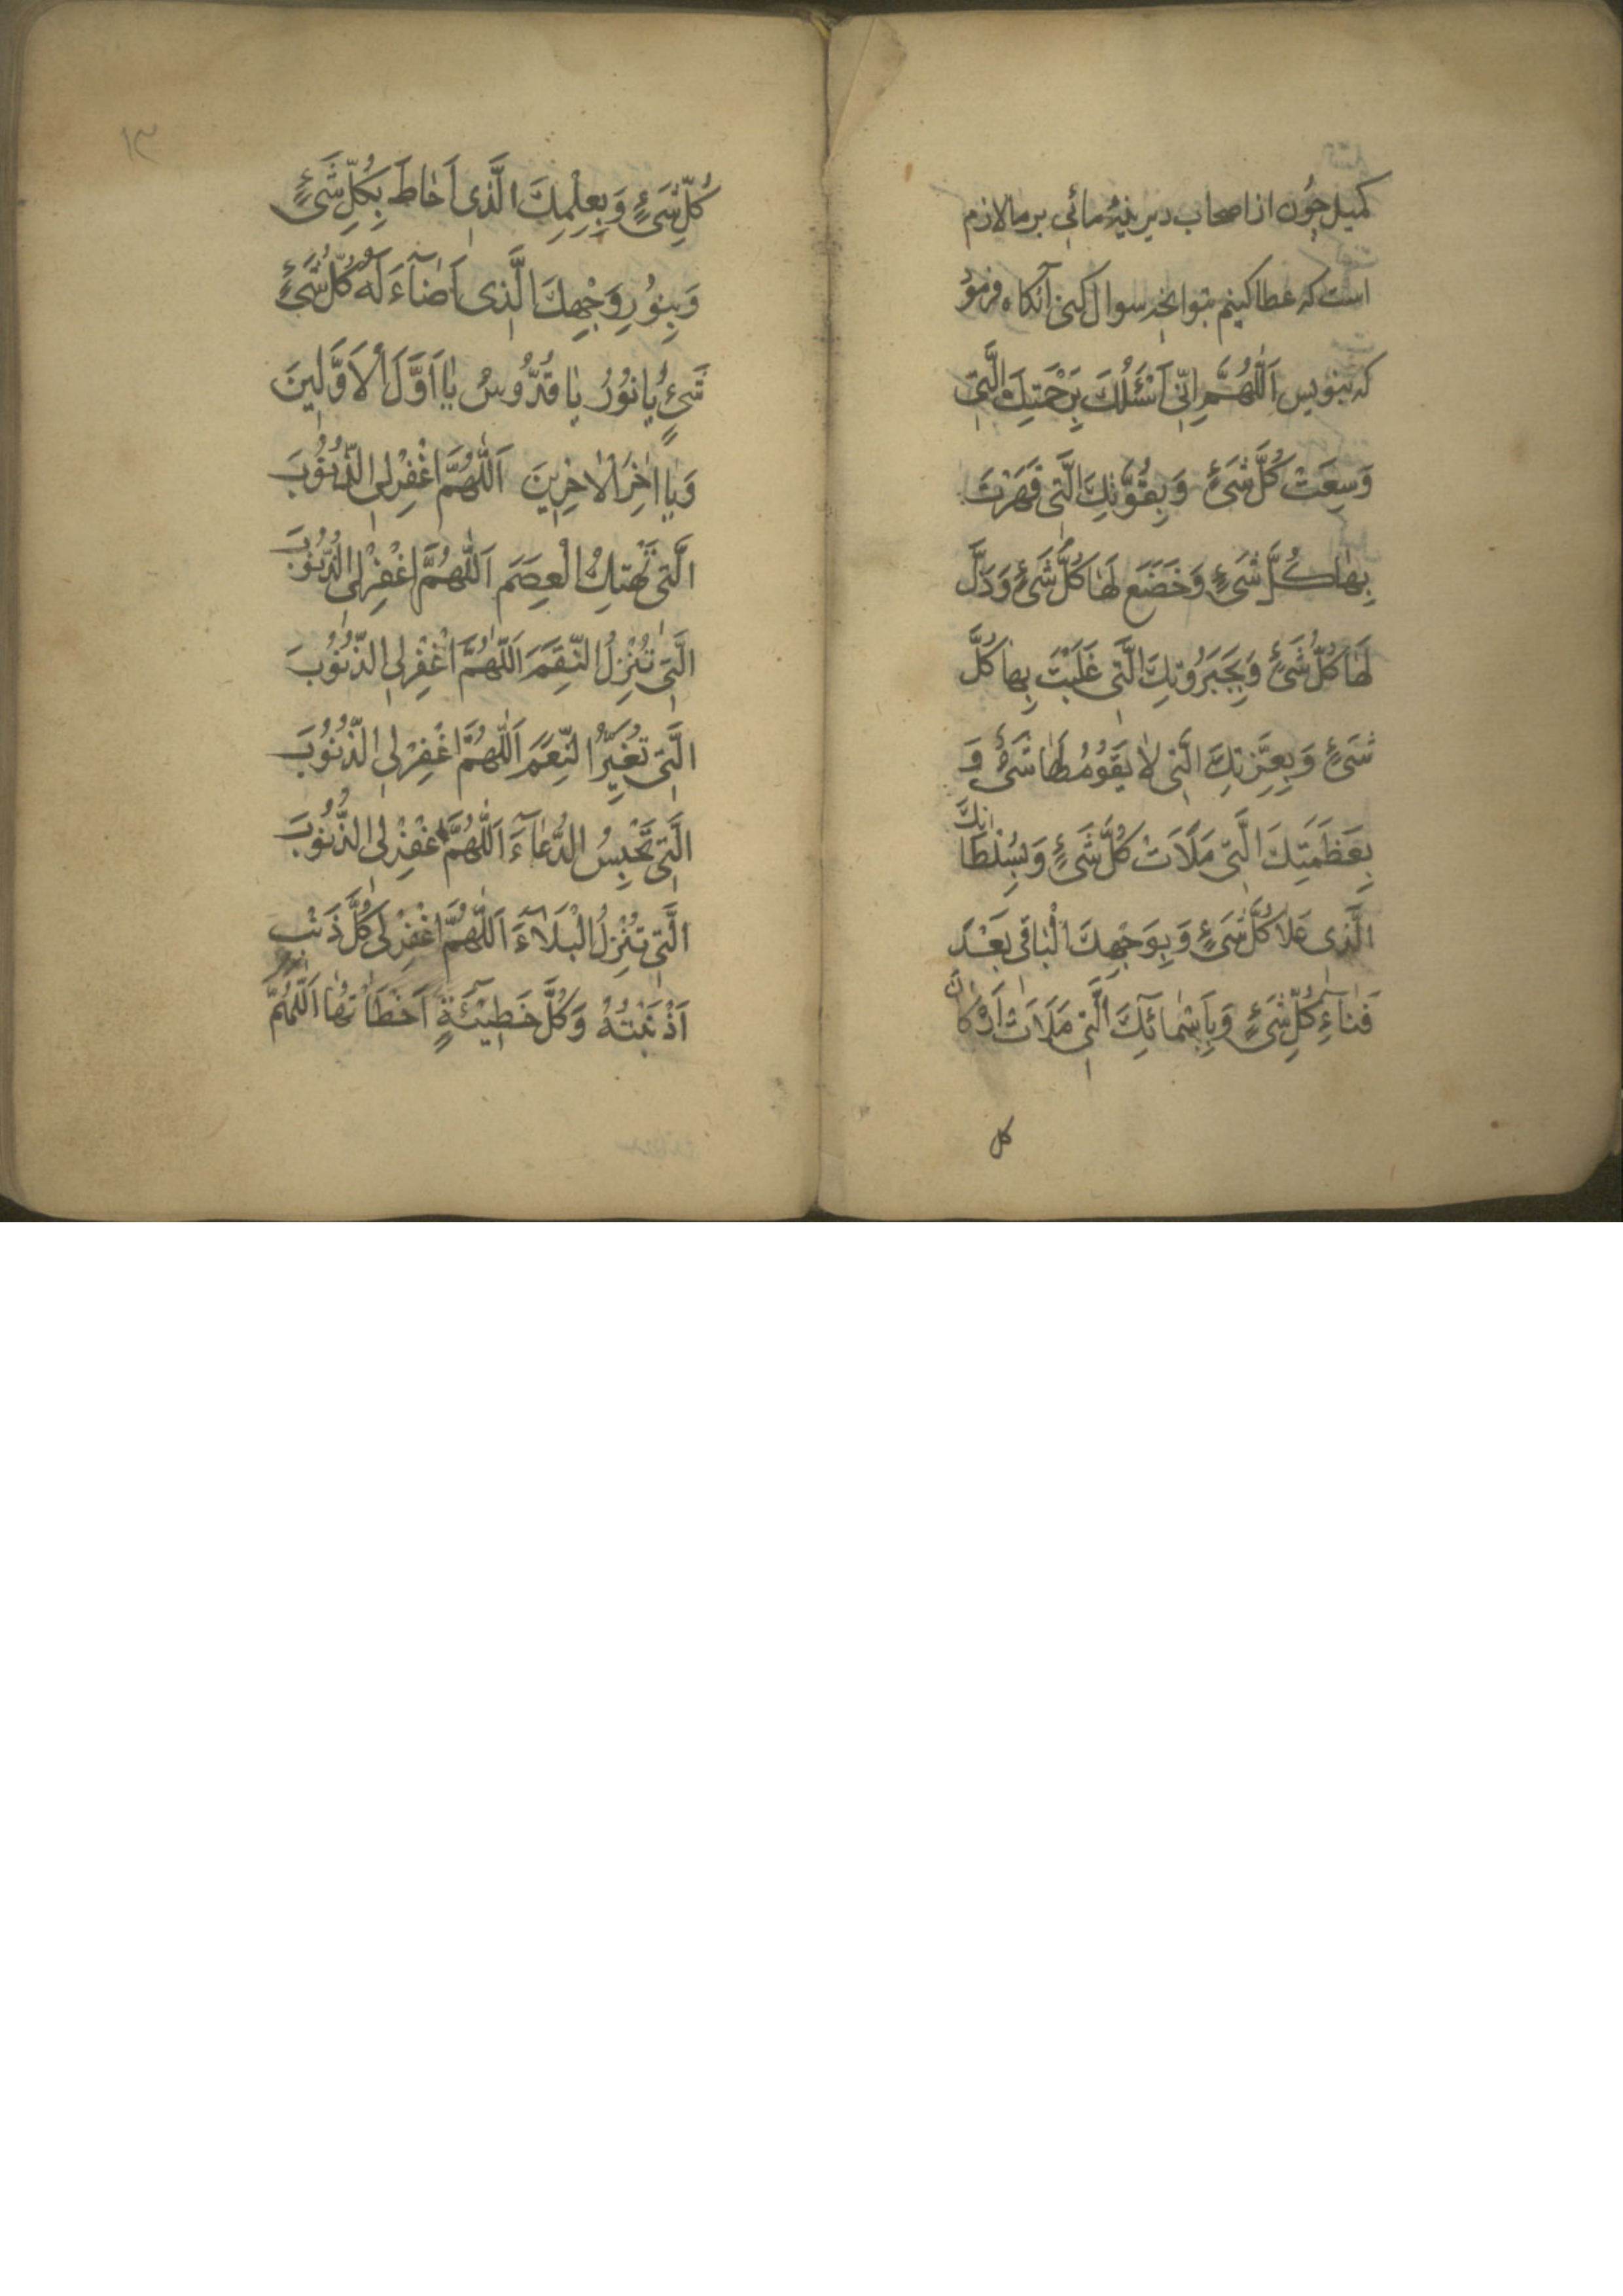 کمیل چون از اصحاب دیرینهٔ مائی بر ما لازم
است که عطا کینم بتو انچه سوال کنی آنکاه فرمود
که بنویس اَللّٰهُمَّ اِنّی اَسْئَلُكَ بِرَحْمَتِكَ الَّتی
وَسِعَتْ كُلَّ شَیْءٍ وَ بِقُوَّتِكَ الَّتی قَهَرْتَ
بِهٰا كُلَّ شَیْءٍ وَ خَضَعَ لَهٰا كُلُّ شَیْءٍ وَ ذَلَّ
لَهٰا كُلُّ شَیْءٍ وَ بِجَبَرُوتِكَ الَّتی غَلَبْتَ بِهٰا كُلَّ
شَیْءٍ وَ بِعِزَّتِكَ الَّتی لٰا یَقُومُ لَهٰا شَیْءٌ وَ
بِعَظَمَتِكَ الَّتی مَلَاَتْ كُلَّ شَیْءٍ وَ بِسُلْطٰانِكَ
الَّذی عَلٰا كُلَّ شَیْءٍ وَ بِوَجْهِكَ الْبٰاقی بَعْدَ
فَنٰآءِ كُلِّ شَیْءٍ وَ بِاَسْمٰائِكَ الَّتی مَلَاَتْ اَرْكٰانَ
كل
١٣
كُلِّ شَیْءٍ وَ بِعِلْمِكَ الَّذی اَحٰاطَ بِكُلِّ شَیْءٍ
وَ بِنُورِ وَجْهِكَ الَّذی اَضٰآءَ لَهُ كُلُّ شَیْءٍ
شَیْءٍ یٰا نُورُ یٰا قُدُّوسُ یٰا اَوَّلَ الْاَوَّلینَ
وَ یٰا اٰخِرَ الْاٰخِرینَ اَللّٰهُمَّ اغْفِرْ لِیَ الذُّنُوبَ
الَّتی تَهْتِكُ الْعِصَمَ اَللّٰهُمَّ اغْفِرْ لِیَ الذُّنُوبَ
الَّتی تُنْزِلُ النِّقَمَ اَللّٰهُمَّ اغْفِرْ لِیَ الذُّنُوبَ
الَّتی تُغَیِّرُ النِّعَمَ اَللّٰهُمَّ اغْفِرْ لِیَ الذُّنُوبَ
الَّتی تَحْبِسُ الدُّعٰآءَ اَللّٰهُمَّ اغْفِرْ لِیَ الذُّنُوبَ
الَّتی تُنْزِلُ الْبَلٰآءَ اَللّٰهُمَّ اغْفِرْ لی كُلَّ ذَنْبٍ
اَذْنَبْتُهُ وَ كُلَّ خَطیٓئَةٍ اَخْطَاْتُهٰا اَللّٰهُمَّ